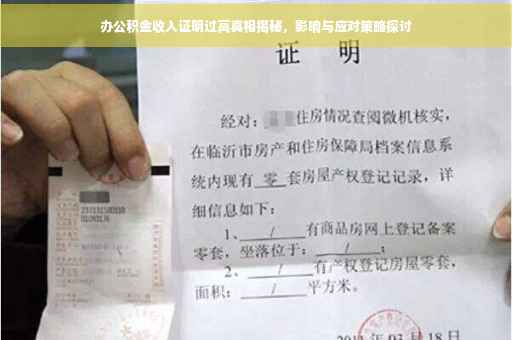 办公积金收入证明过高真相揭秘，影响与应对策略探讨
证 明
经对：住房情况查阅微机核实，
在临沂市房产和住房保障局档案信息系
统内现有 零 套房屋产权登记记录，详
细信息如下：
1、 / 有商品房网上登记备案
零套，坐落位于： / ；
2、 / 有产权登记房屋零套，
面积： / 平方米。
03 月 18 日